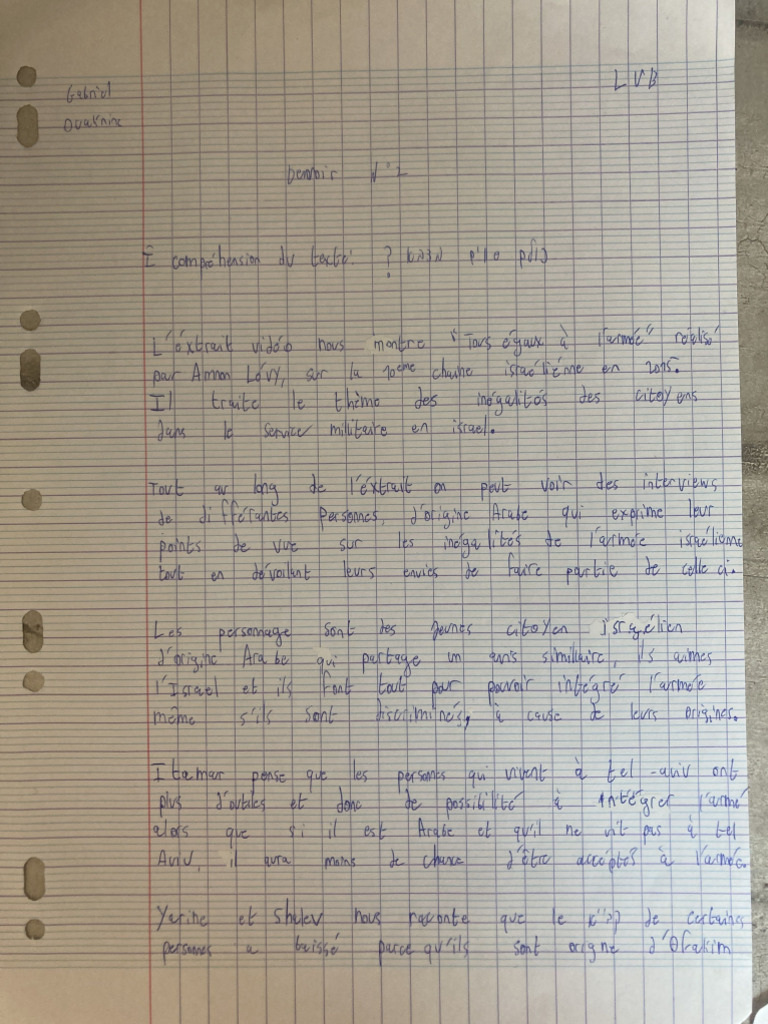 Gabriel
LVB
Ouaknine
Devoir N°2
I compréhension du texte: ?
L'éxtrait vidéo nous montre "Tous égaux à l'armée" réalisé
par Amnon Lévy, sur la 10eme chaine israélienne en 2015.
Il traite le thème des inégalités des citoyens
dans le service militaire en israel.
Tout au long de l'éxtrait on peut voir des interviews
de différantes personnes, d'origine Arabe qui exprime leur
points de vue sur les inégalités de l'armée israélienne
tout en dévoilant leurs envies de faire partie de celle ci.
Les personnage sont des jeunes citoyen israélien
d'origine Arabe qui partage un avis simillaire, ils aimes
l'Israel et ils font tout pour pouvoir intégré l'armée
même s'ils sont discriminés, à cause de leurs origines.
Itamar pense que les personnes qui vivent à tel-aviv ont
plus d'outiles et donc de possibilité à intégrer l'armé
alors que si il est Arabe et qu'il ne vit pas à tel
Aviv, il aura moins de chance d'être acceptés à l'armée.
Yarine et Shalev nous raconte que le קב״א de certaines
personnes a baissé parce qu'ils sont origine d'Ofakim